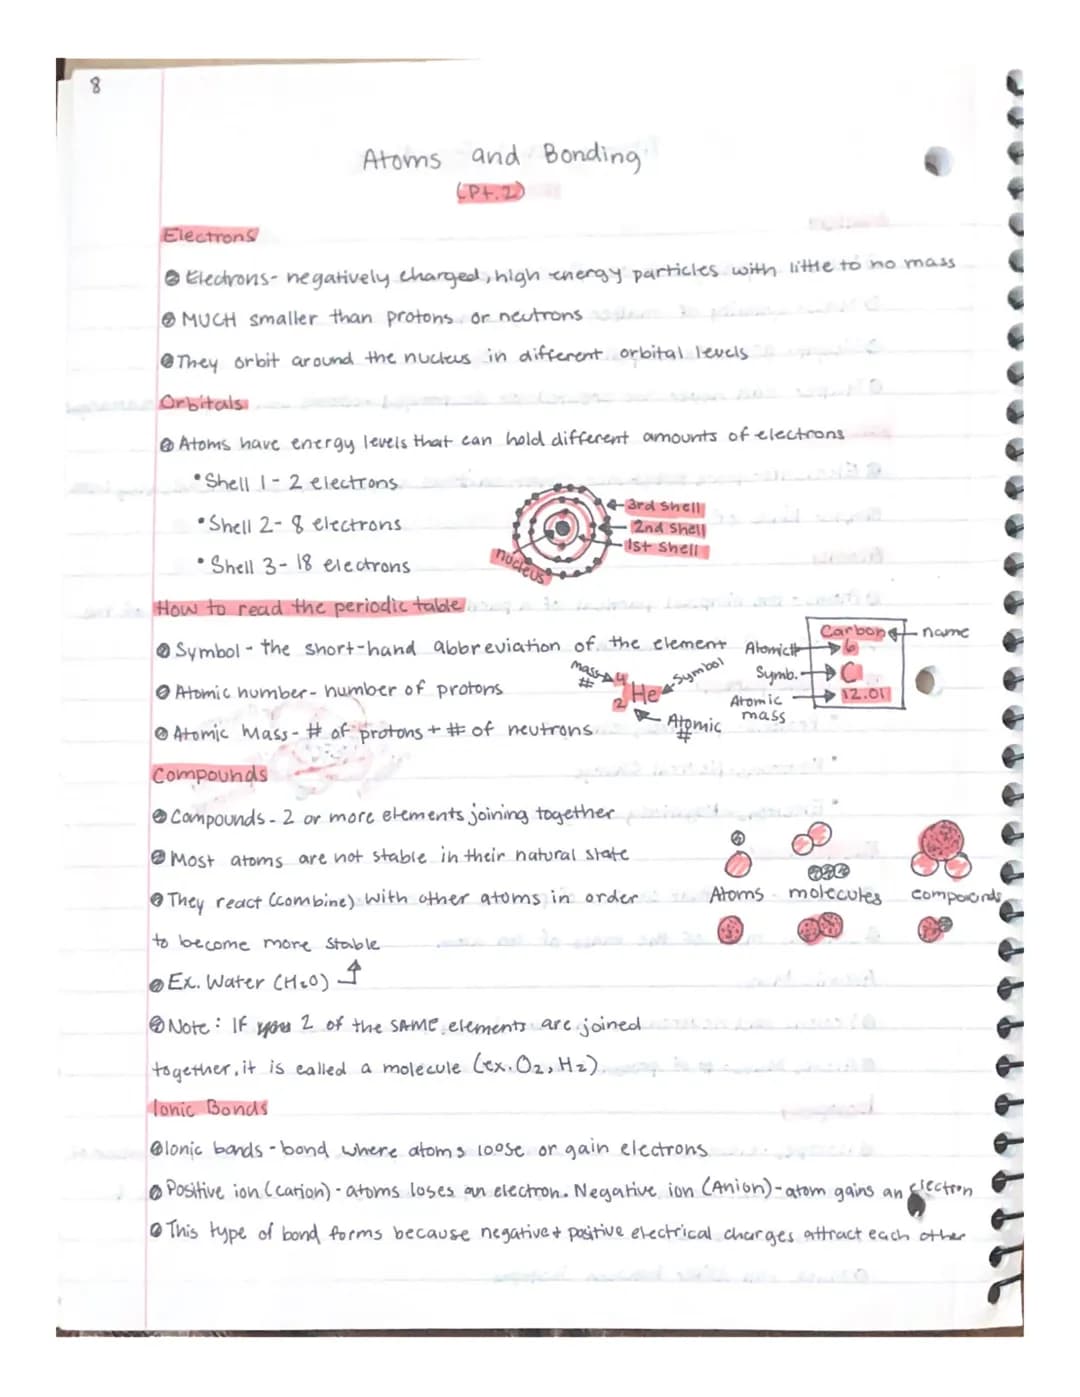 8
Atoms and Bonding
(Pt.2)
Electrons
Electrons- negatively charged, high energy particles with little to no mass
MUCH smaller than protons or neutrons
They orbit around the nucleus in different orbital levels
Orbitals
Atoms have energy levels that can hold different amounts of electrons
•Shell 1- 2 electrons
•Shell 2- 8 electrons
•Shell 3- 18 electrons
3rd Shell
2nd Shell
1st Shell
nucleus
How to read the periodic table
Symbol- the short-hand abbreviation of the element
Atomic number- number of protons
Atomic Mass- # of protons + # of neutrons
mass #
4
2
He
Symbol
Atomic #
Carbon
name
Atomic#
6
Symb.
C
Atomic mass
12.01
Compounds
Compounds- 2 or more elements joining together
Most atoms are not stable in their natural state
They react (combine) with other atoms in order
to become more stable
Ex. Water (H₂O)
Atoms molecules compounds
Note: If you 2 of the SAME elements are joined
together, it is called a molecule (ex. O₂, H₂)
Ionic Bonds
Ionic bands- bond where atoms loose or gain electrons
Positive ion (cation)- atoms loses an electron. Negative ion (Anion)- atom gains an electron
This type of bond forms because negative + positive electrical charges attract each other